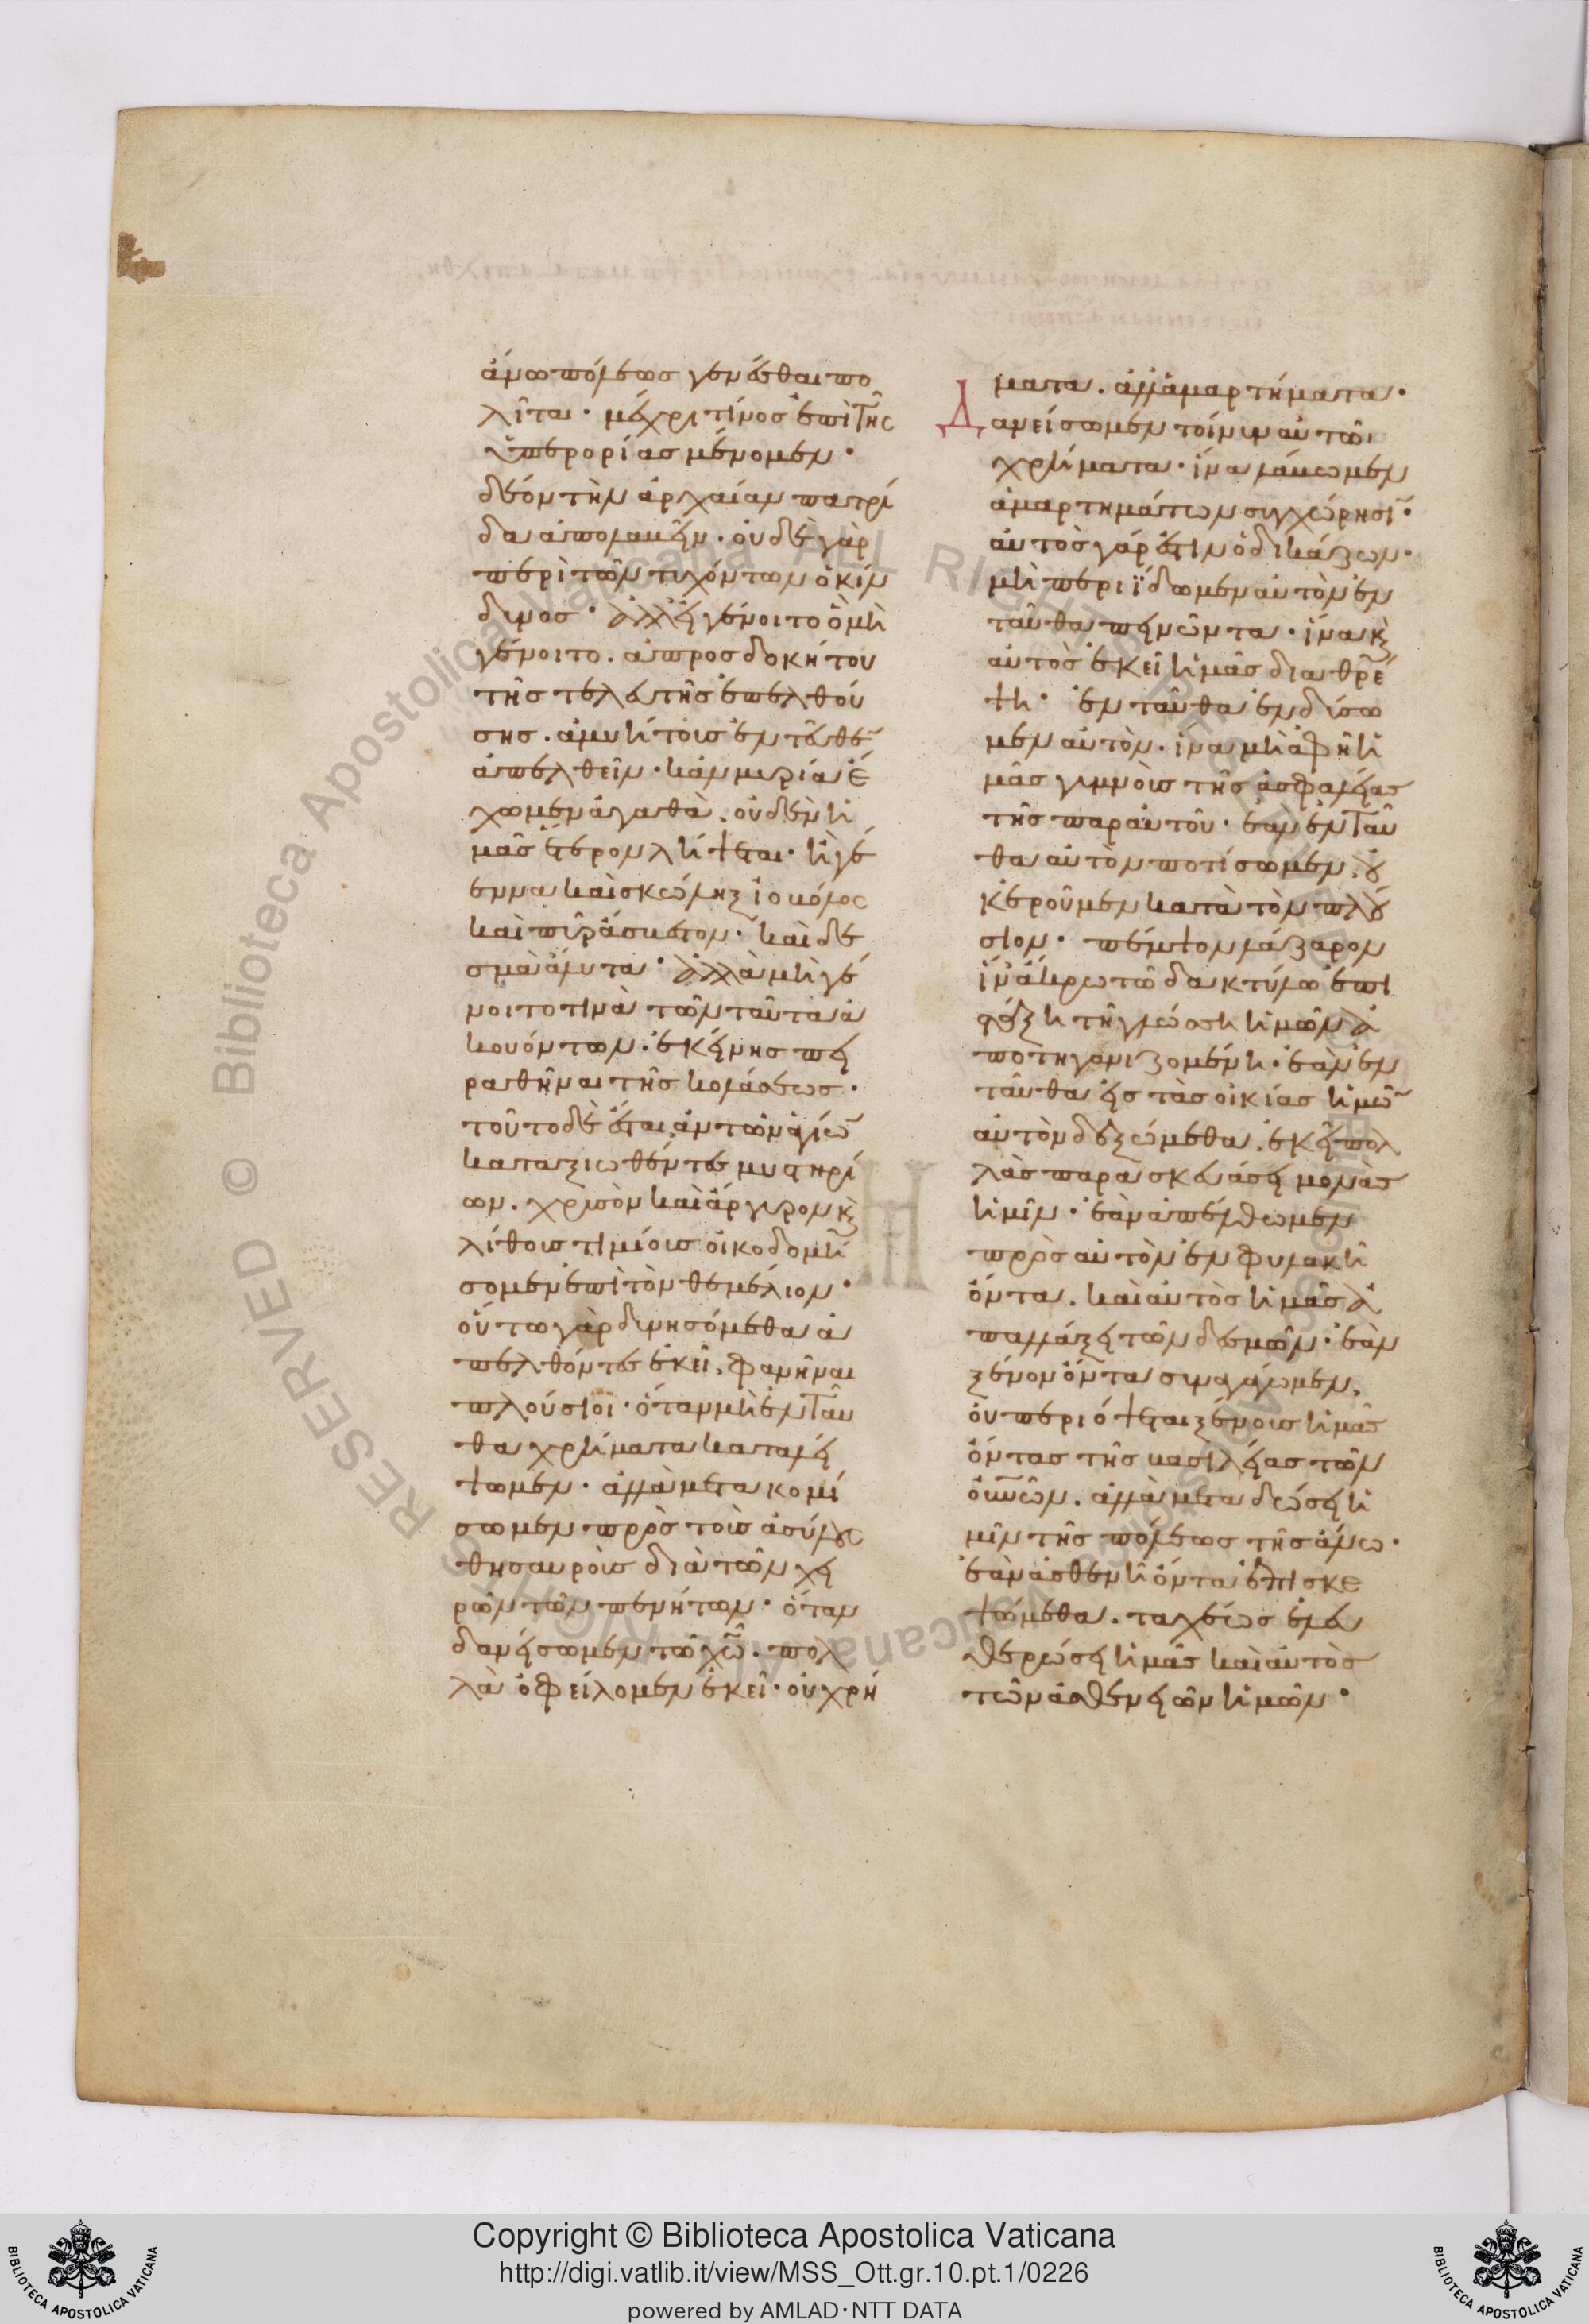 ἄνω πόλεως γενέσθαι πο
λῖται· μέχρι τίνος ἐπὶ τῆς
ὑπερορίας μένομεν·
δέον τὴν ἀρχαίαν πατρί
δα ἀπολαβεῖν· οὐδὲ γὰρ
περὶ τῶν τυχόντων ὁ κίν
δυνος· ἀλλ' εἰ γένοιτο ὃ μὴ
γένοιτο. ἀπροσδοκήτου
τῆς τελευτῆς ἐπελθού
σης. ἀμυήτοις ἐντεῦθε̄
ἀπελθεῖν· κἂν μυρία ἔ
χωμεν ἀγαθὰ. οὐδὲν ἡ
μᾶς ἕτερον λήψεται· ἢ γέ
εννα καὶ σκώληξ ἰοβόλος
καὶ πῦρ ἄσβεστον· καὶ δε
σμὰ ἄλυτα· ἀλλὰ μὴ γέ
νοιτο τινὰ τῶν ταῦτα ἀ
κουόντων· ἐκείνης πει
ραθῆναι τῆς κολάσεως·
τοῦτο δὲ ἔσται ἂν τῶν ἁγίω̄
καταξιωθέντες μυστηρί
ων. χρυσὸν καὶ ἄργυρον κ̀
λίθους τιμίους οἰκοδομή
σομεν ἐπὶ τὸν θεμέλιον·
οὕτω γὰρ δυνησόμεθα ἀ
πελθόντες ἐκεῖ, φανῆναι
πλούσιοι· ὅταν μὴ ἐνταῦ
θα χρήματα καταλεί
ψωμεν· ἀλλὰ μετακομί
σωμεν πρὸς τοὺς ἀσύλους
θησαυροὺς διὰ τῶν χει
ρῶν τῶν πενήτων· ὅταν
δανείσωμεν τῶ χω̄· πολ
λὰ ὀφείλομεν ἐκεῖ· οὐ χρή
ματα. ἀλλ' ἁμαρτήματα·
Δανείσωμεν τοίνυν αὐτῶι
χρήματα· ἵνα λάβωμεν
ἁμαρτημάτων συγχώρησῑ·
αὐτὸς γάρ ἐστιν ὁ δικάζων·
μὴ περιΐδωμεν αὐτὸν ἐν
ταῦθα πεινῶντα· ἵνα κ̀
αὐτὸς ἐκεῖ ἡμᾶς διαθρέ
ψη· ἐνταῦθα ἐνδύσω
μεν αὐτὸν. ἵνα μὴ ἀφῆ ἡ
μᾶς γυμνοὺς τῆς ἀσφαλείας
τῆς παρ' αὐτοῦ· ἐὰν ἐνταῦ
θα αὐτὸν ποτίσωμεν. οὐ
κ' ἐροῦμεν κατὰ τὸν πλού
σιον· πέμψον λάζαρον
ἵν' ἄκρω τῶ δακτύλω ἐπι
στάξη τῆ γλώσση ἡμῶν ἀ
ποτηγανιζομένη· ἐὰν ἐν
ταῦθα εἰς τὰς οἰκίας ἡμῶ̄
αὐτὸν δεξώμεθα. ἐκεῖ πολ
λὰς παρασκευάσει μονὰς
ἡμῖν· ἐὰν ἀπέλθωμεν
πρὸς αὐτὸν ἐν φυλακῆ
ὄντα. καὶ αὐτὸς ἡμᾶς ἀ
παλλάξει τῶν δεσμῶν· ἐὰν
ξένον ὄντα συναγάγωμεν.
οὐ περιόψεται ξένους ἡμᾶς
ὄντας τῆς βασιλείας τῶν
οὐνῶν. ἀλλὰ μεταδώσει ἡ
μῖν τῆς πόλεως τῆς ἄνω·
ἐὰν ἀσθενῆ ὄντα ἐπισκε
ψώμεθα. ταχέως ἐλευ
θερώσει ἡμᾶς καὶ αὐτὸς
τῶν ἀσθενειῶν ἡμῶν·
Copyright © Biblioteca Apostolica Vaticana
http://digi.vatlib.it/view/MSS_Ott.gr.10.pt.1/0226
powered by AMLAD·NTT DATA